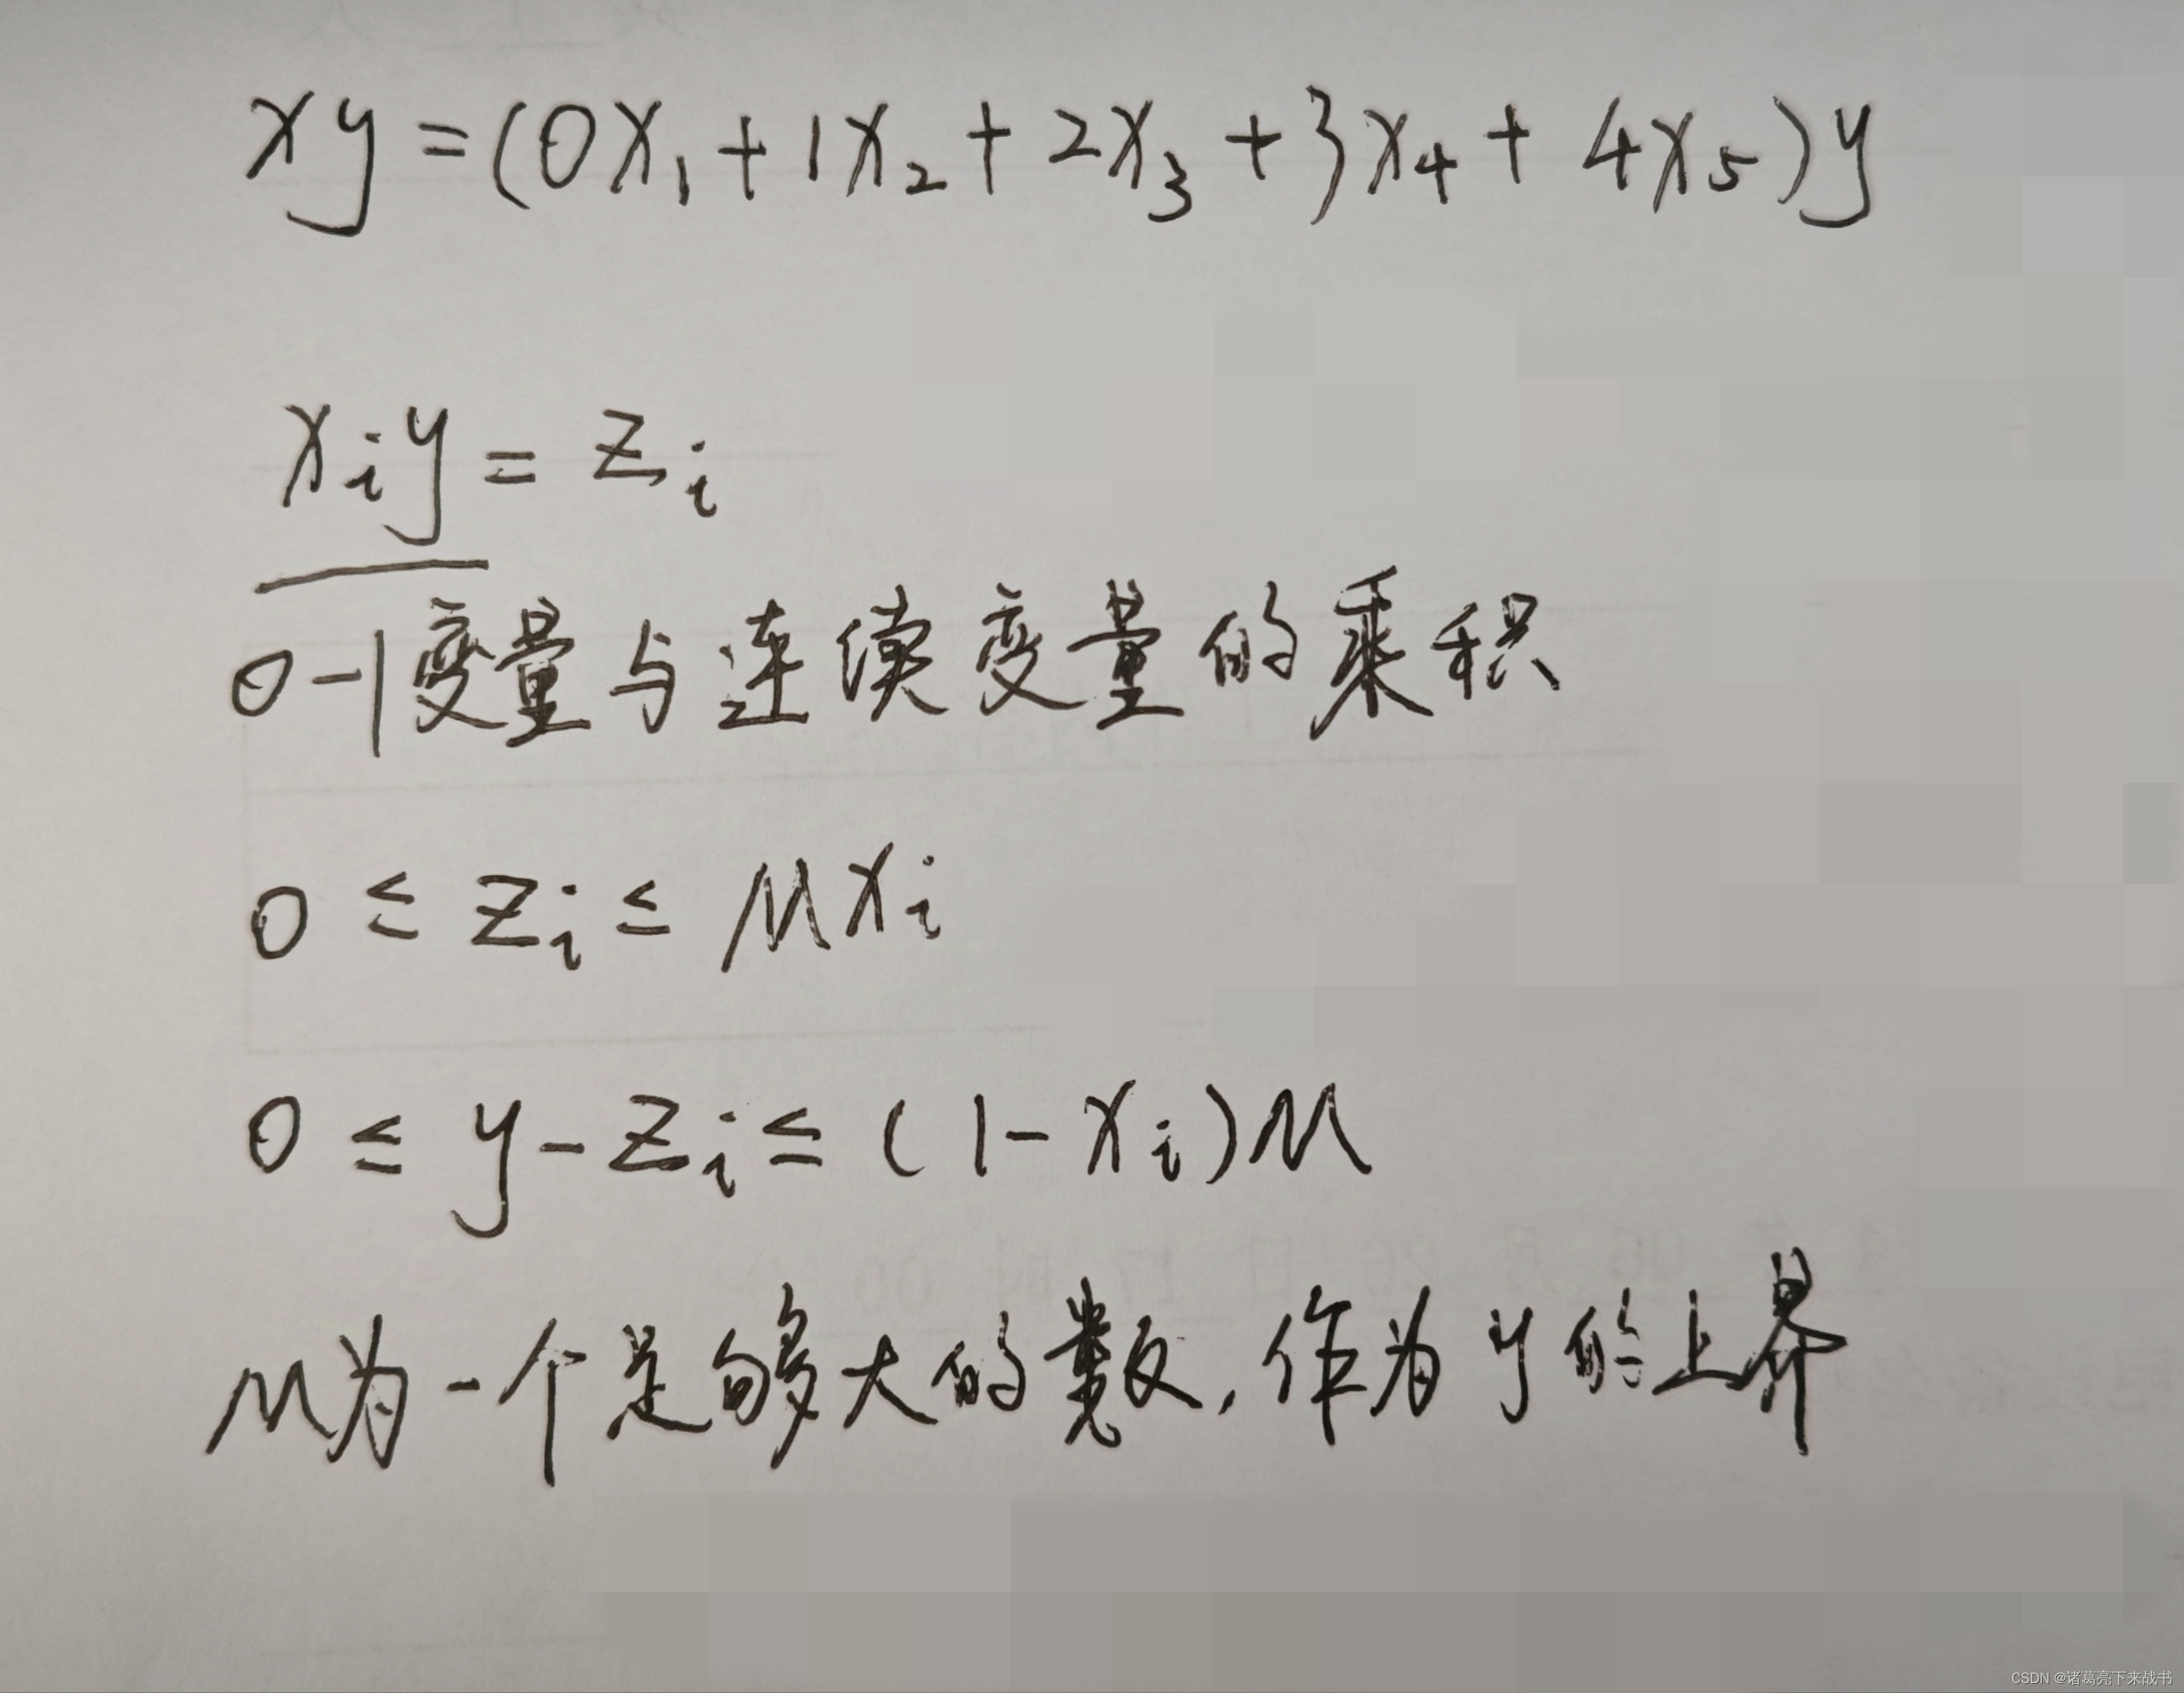 xy=(0x₁+1x₂+2x₃+3x₄+4x₅)y
xᵢy=zᵢ
0-1变量与连续变量的乘积
0≤zᵢ≤Mxᵢ
0≤y-zᵢ≤(1-xᵢ)M
M为一个足够大的数,作为y的上界
CSDN @诸葛亮下来战书